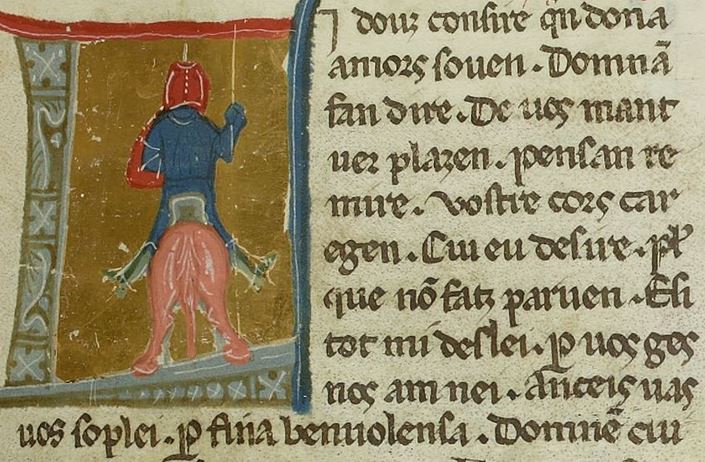 douz consire qͥn dona
amors souen · Domnā
fan dire · De uos mant
uer plazen · pensan re
mire · Vostre cors car
egen · Cui eu desire · pl᷒
que nō fatz paruen · Eli
tot mi deslei · ꝑ uos ges
nos am nei · Anceis uas
uos soplei · ꝑ fina benuolensa · Domnē cui